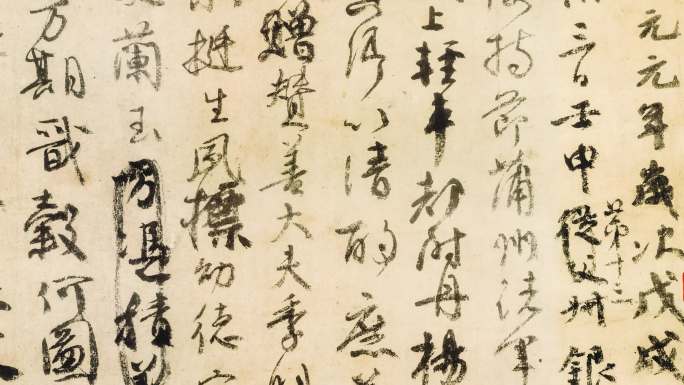 元元年歲次戊戌
三日壬申從父第十三叔銀
持節蒲州諸軍
上輕車都尉丹楊
卿以清酌庶
贈贊善大夫季明
挺生夙標幼德
蘭玉方憑積善
方期戩穀何圖